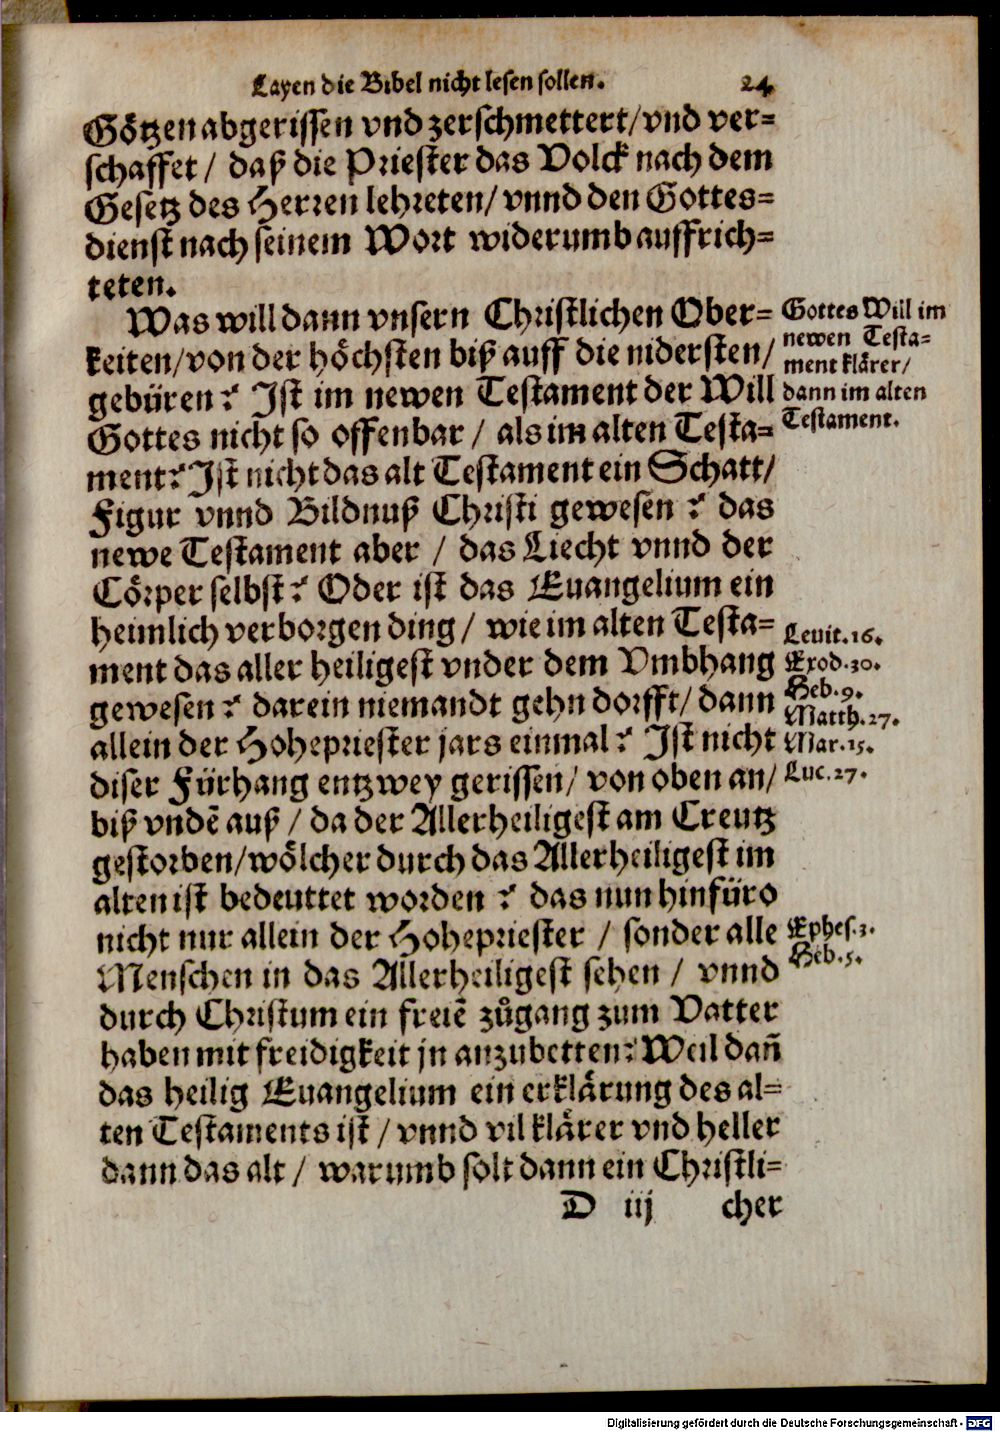 Layen die Bibel nicht lesen sollen. 24
Götzen abgerissen vnd zerschmettert/vnd ver=
schaffet / daß die Priester das Volck nach dem
Gesetz des Herren lehreten/ vnnd den Gottes=
dienst nach seinem Wort widerumb auffrich=
teten.
Was will dann vnsern Christlichen Ober=
keiten/von der höchsten biß auff die nidersten/
gebüren? Ist im newen Testament der Will
Gottes nicht so offenbar / als im alten Testa=
ment? Ist nicht das alt Testament ein Schatt/
Figur vnnd Bildnuß Christi gewesen ? das
newe Testament aber / das Liecht vnnd der
Cörper selbst? Oder ist das Euangelium ein
heimlich verborgen ding / wie im alten Testa=
ment das aller heiligest vnder dem Vmbhang
gewesen ? darein niemandt gehn dorfft/ dann
allein der Hohepriester jars einmal ? Ist nicht
diser Fürhang entzwey gerissen/ von oben an/
biß vndē auß / da der Allerheiligest am Creutz
gestorben/wölcher durch das Allerheiligest im
alten ist bedeuttet worden ? das nun hinfüro
nicht nur allein der Hohepriester / sonder alle
Menschen in das Allerheiligest sehen / vnnd
durch Christum ein freiē zůgang zum Vatter
haben mit freidigkeit jn anzubetten? Weil dañ
das heilig Euangelium ein erklärung des al=
ten Testaments ist / vnnd vil klärer vnd heller
dann das alt / warumb solt dann ein Christli=
D iij cher
Gottes Will im
newen Testa=
ment klärer/
dann im alten
Testament.
Leuit.16.
Exod.30.
Heb.9.
Matth.27.
Mar.15.
Luc.27.
Ephes.3.
Heb.5.
Digitalisierung gefördert durch die Deutsche Forschungsgemeinschaft - DFG